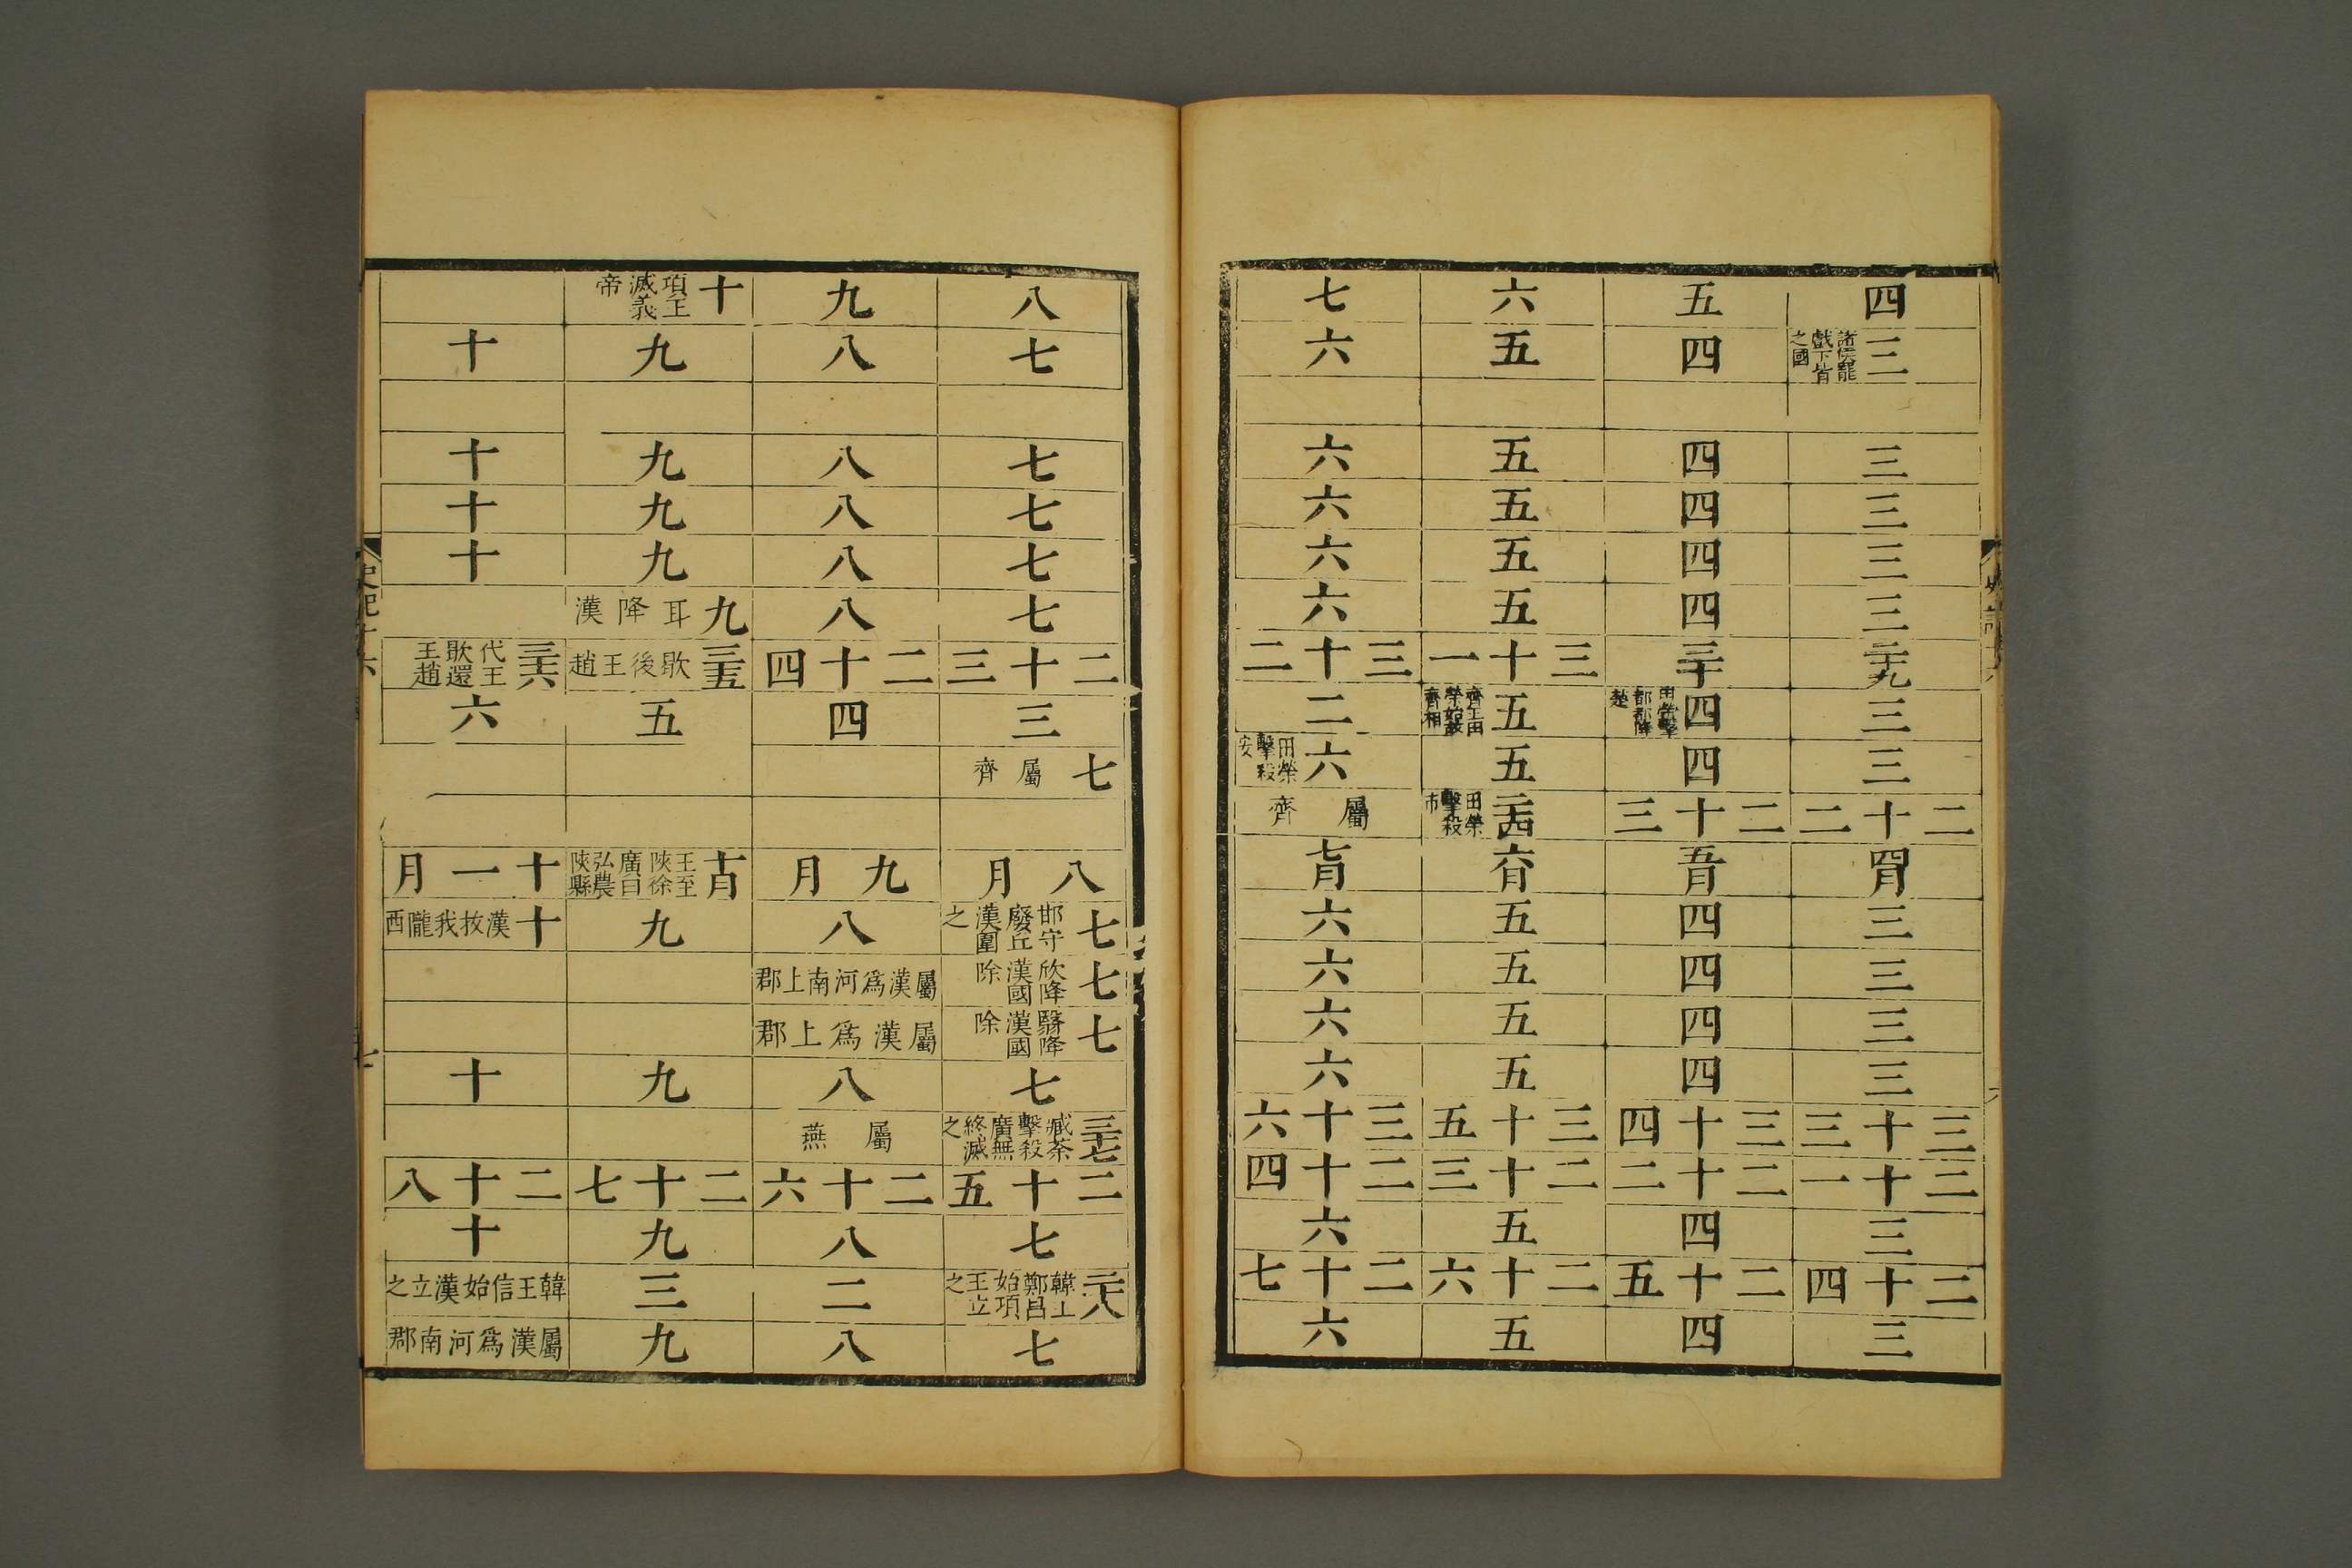 四
三 諸侯罷戲下皆之國
三
三
三
三
二十九
三
三
二十二
四月
三
三
三
三
三十三
二十一
三
二十四
三
五
四
四
四
四
四
三十
四 田榮擊都都降楚
四
二十三
五月
四
四
四
四
三十四
二十二
四
二十五
四
六
五
五
五
五
五
三十一
五 齊王田榮始故齊相
五
二十四 田榮擊殺市
六月
五
五
五
五
三十五
二十三
五
二十六
五
七
六
六
六
六
六
三十二
二
六 田榮擊殺安
屬齊
七月
六
六
六
六
三十六
二十四
六
二十七
六
八
七
七
七
七
七
二十三
三
七 屬齊
八月
七 邯守廢丘漢圍之
七 欣降漢國除
七 翳降漢國除
七
三十七 臧荼擊殺廣無終滅之
二十五
七
二十八 韓王鄭昌始項王立之
七
九
八
八
八
八
八
二十四
四
九月
八
屬漢爲河南上郡
屬漢爲上郡
八
屬燕
二十六
八
二
八
十 項王滅義帝
九
九
九
九
九 耳降漢
三十五 歇後王趙
五
十月 王至陝徐廣曰弘農陝縣
九
九
二十七
九
三
九
十
十
十
十
三十六 代王歇還王趙
六
十一月
十 漢拔我隴西
十
二十八
十
韓王信始漢立之
屬漢爲河南郡
史記十六
七